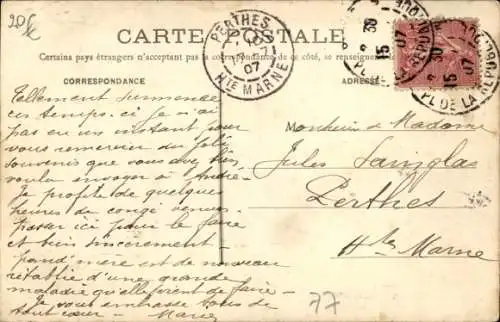 20f
CARTE POSTALE
Certains pays étrangers n'acceptant pas la correspondance de ce côté, se renseigner
CORRESPONDANCE
ADRESSE
PERTHES
07
Hte MARNE
15
07
PL DE LA RÉPUBLIQUE
Tellement surmenée
ces temps-ci je n'ai
pas eu un instant pour
vous remercier du joli
souvenir que vous avez bien
voulu envoyer à André
Je profite de quelques
heures de congé
passer ici pour le faire
et bien sincèrement
grand'mère est de nouveau
rétablie d'une grande
maladie qu'elle vient de faire
Je vous embrasse tous de
tout cœur - Marie
Monsieur et Madame
Jules Sainglas
Perthes
Hte Marne
77